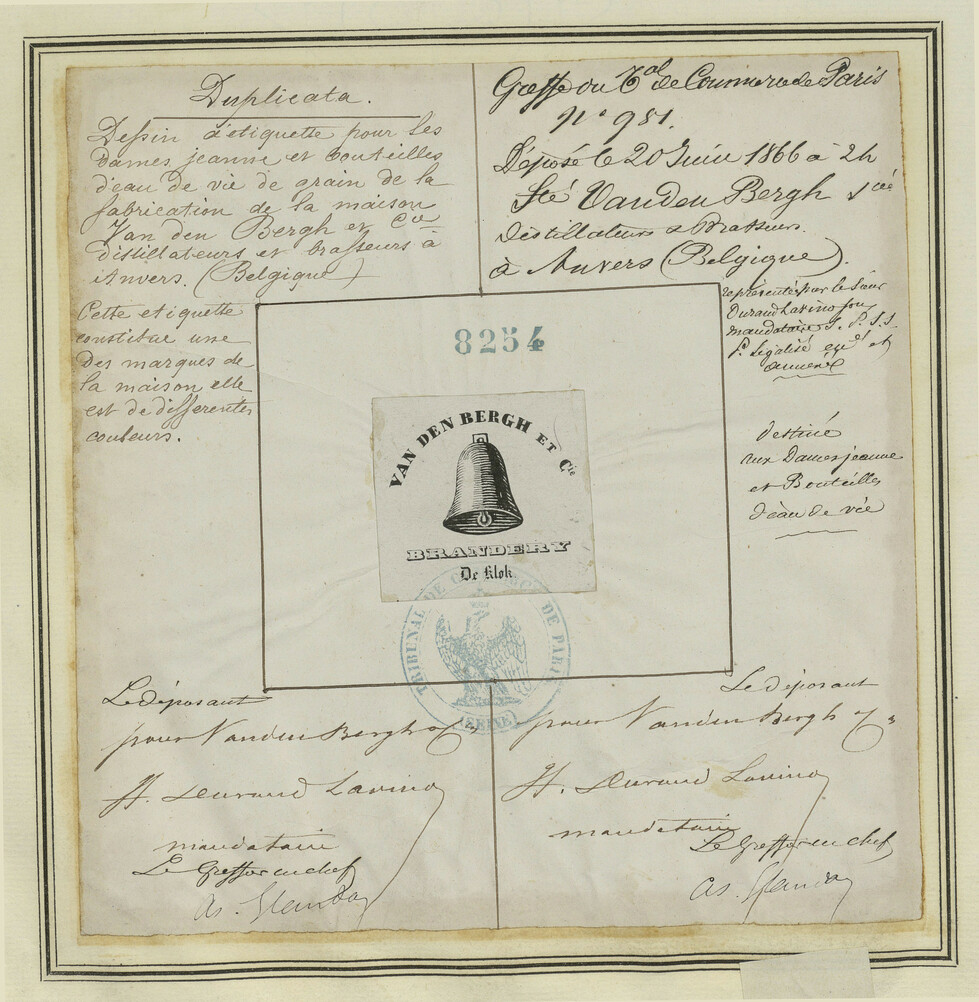 Duplicata.
Dessin d'étiquette pour les
dames jeanne et bouteilles
d'eau de vie de grain de la
fabrication de la maison
Van den Bergh et Cie
distillateurs et brasseurs à
Anvers. (Belgique)
Cette etiquette
constitue une
des marques de
la maison elle
est de differentes
couleurs.
Greffe du Tal de Commerce de Paris
N° 981.
Déposé le 20 Juin 1866 à 2h
Sté Vanden Bergh & Cie
Distillateurs & Brasseurs.
à Anvers (Belgique).
représenté par le Sieur
Durand Lavino son
mandataire S. P. S. S.
P. légalisé enré et
annexé
destiné
aux Dames jeanne
et Bouteilles
d'eau de vie
8254
VAN DEN BERGH ET Cie
BRANDERY
De Klok.
TRIBUNAL DE COMMERCE DE PARIS
(SEINE)
Le déposant
pour Vanden Bergh &
H. Durand Lavino
mandataire
Le Greffier en chef
Le déposant
pour Vanden Bergh &
H. Durand Lavino
mandataire
Le Greffier en chef